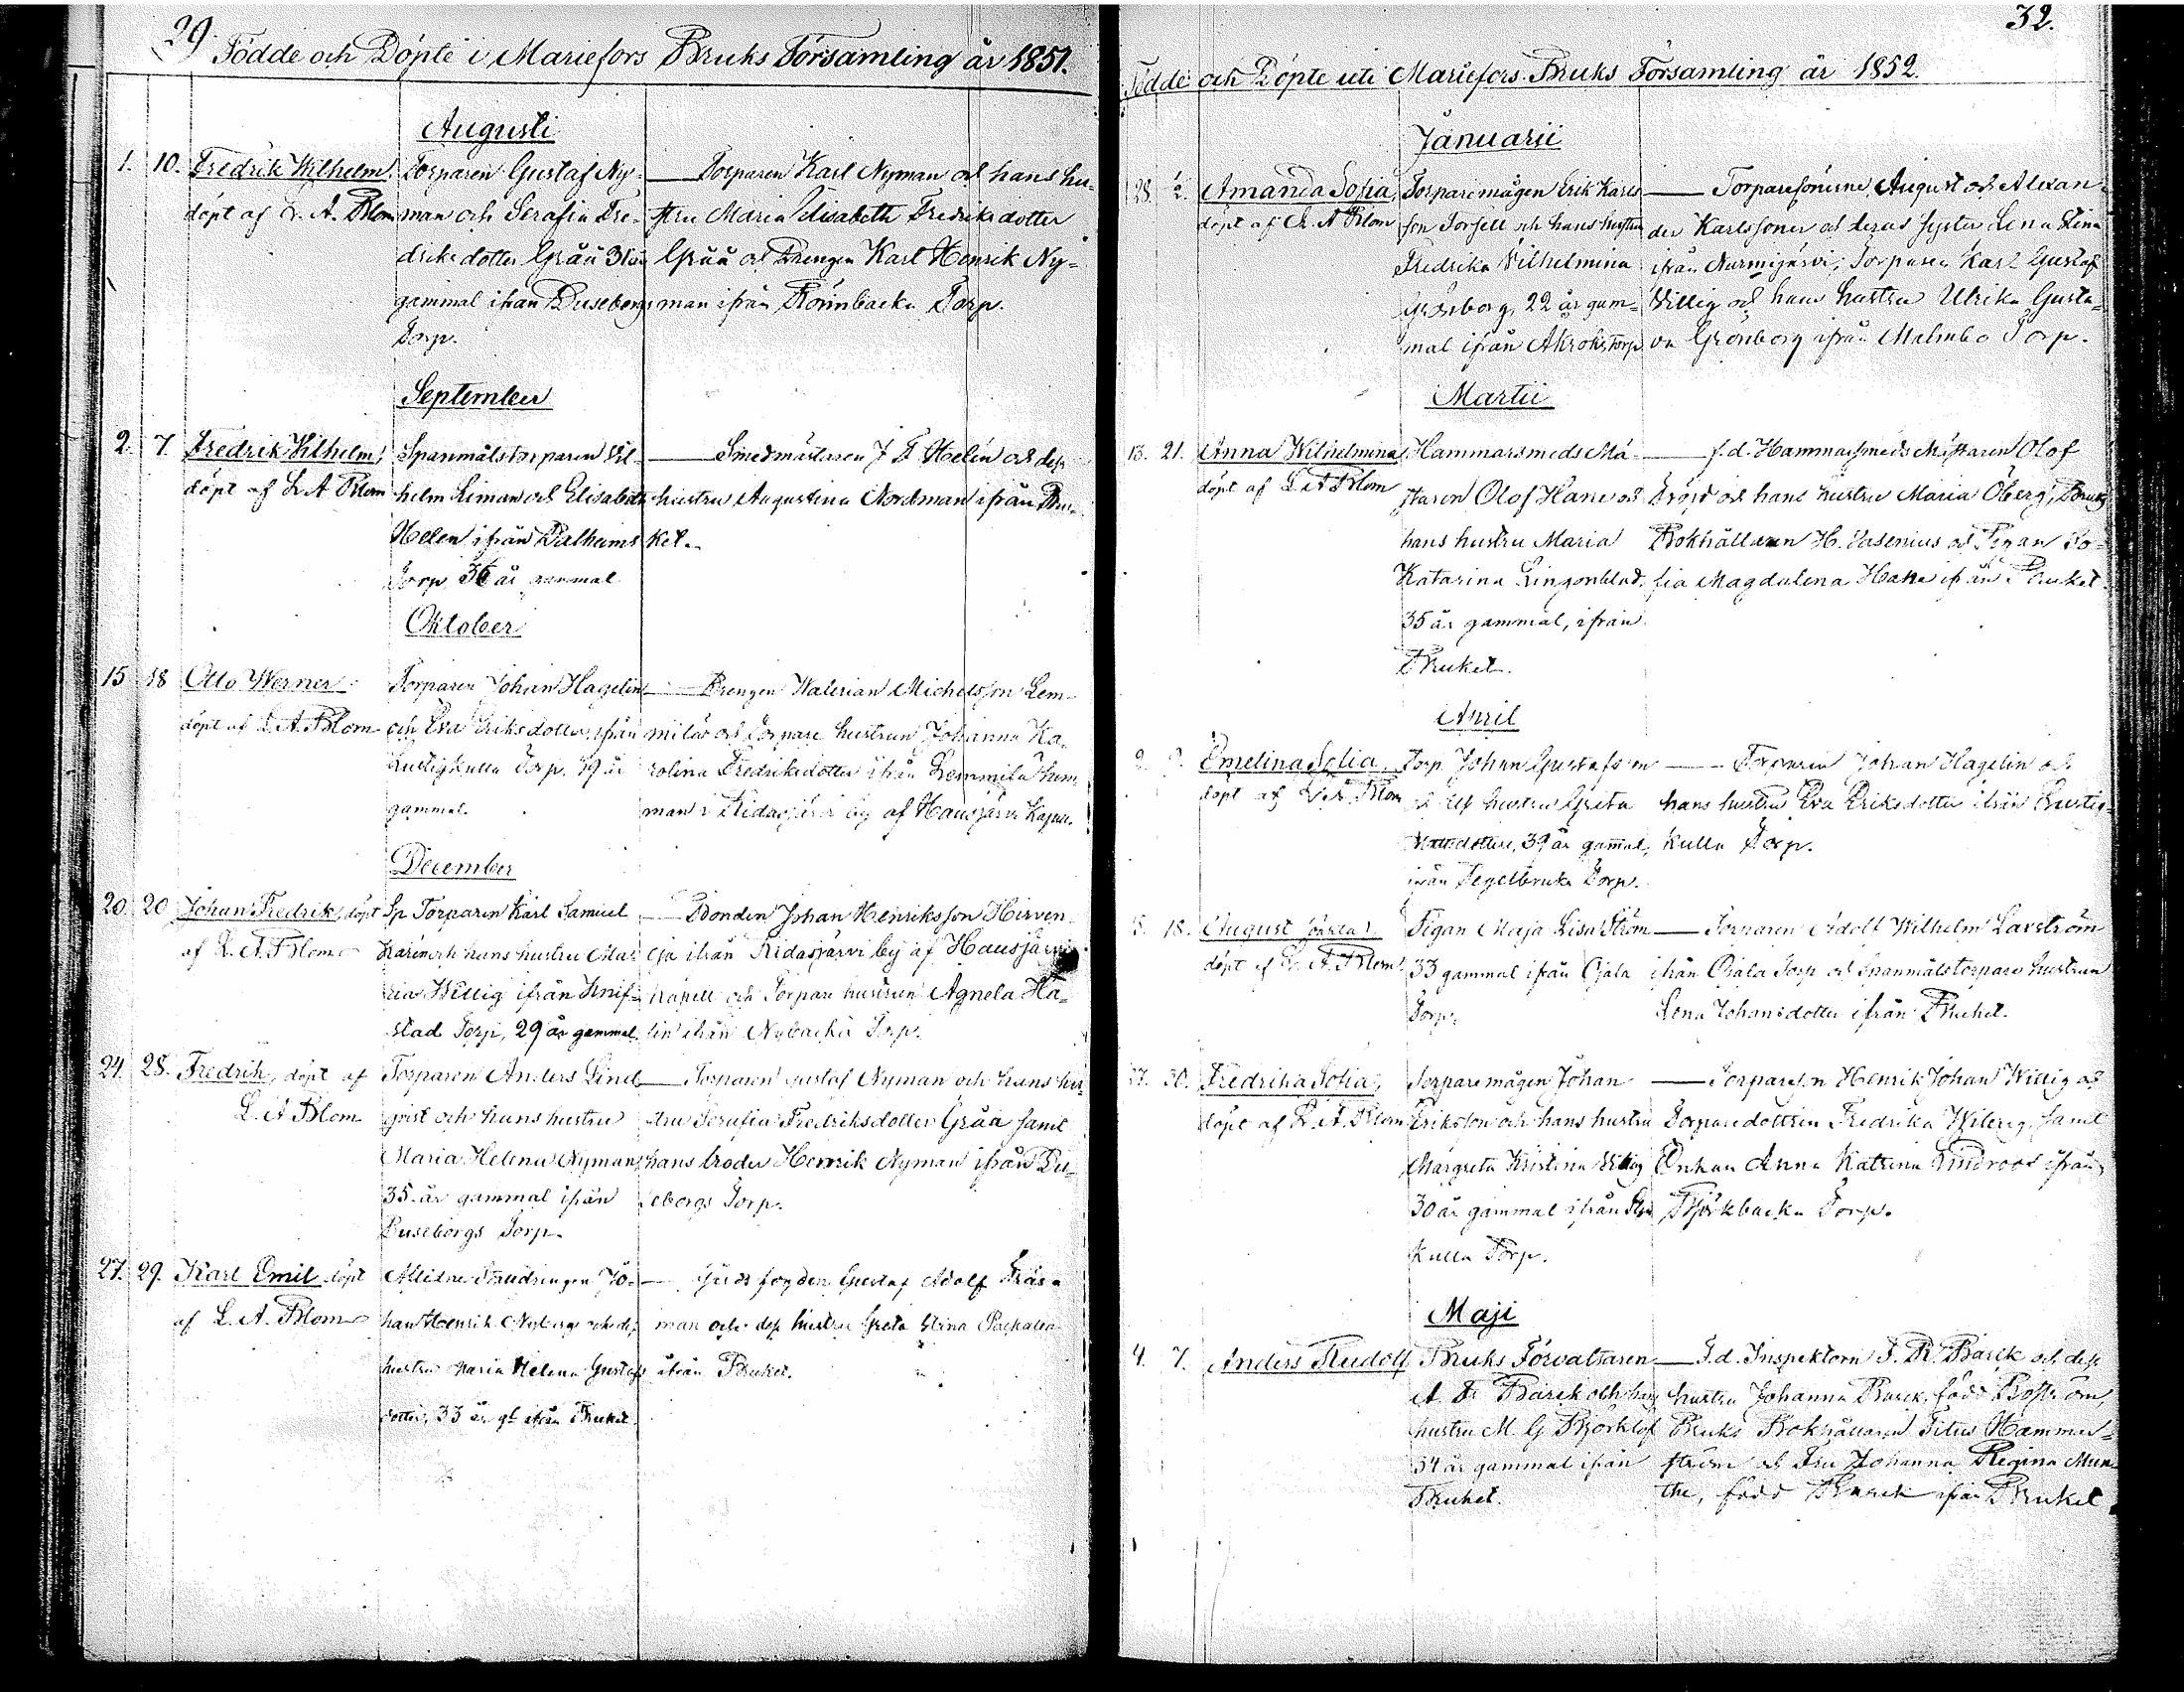 29.
Födde och Döpte i Mariefors Bruks Församling år 1851.
Augusti
1. 10. Fredrik Wilhelm, Torparen Gustaf Ny- — Torparen Karl Nyman och hans hu-
döpt af L. A. Blom man och Serafia Fre- stru Maria Elisabeth Fredriksdotter
driksdotter Gråå 31 år Gråå och Drengen Karl Henrik Ny-
gammal ifrån Buseborgs man ifrån Rönnbacka Torp.
Torp.
September
2. 7. Fredrik Wilhelm, Spanmålstorparen Vil- — Smedmästaren J F Helén och dess
döpt af L A Blom helm Liman och Elisabeth hustru Augustina Nordman ifrån Bru-
Helen ifrån Dalheims ket.
Torp 36 år gammal
Oktober
15 18 Otto Werner Torparen Johan Hagelin — Drengen Walerian Michelsson Lem-
döpt af L. A. Blom och Eva Eriksdotter, ifrån milä och Torpare hustrun Johanna Ka-
Lustigkulla Torp. 39 år rolina Fredriksdotter ifrån Lemmilä hem-
gammal. man i Ridasjärvi by af Hausjärvi Kapell.
December
20. 20 Johan Fredrik, döpt Sp Torparen Karl Samuel — Bonden Johan Henriksson Hirven
af L. A. Blom Karén och hans hustru Ma- oja ifrån Ridasjärvi by af Hausjärvi
ria Willig ifrån Knif- Kapell och Torpare hustrun Agneta Ha-
stad Torp, 29 år gammal. lin ifrån Nybacka Torp.
24. 28. Fredrik, döpt af Torparen Anders Lind — Torparen Gustaf Nyman och hans hu-
L. A Blom qvist och hans hustru stru Serafia Fredriksdotter Gråå samt
Maria Helena Nyman, hans broder Henrik Nyman ifrån Bu-
35 år gammal ifrån seborgs Torp.
Buseborgs Torp.
27. 29. Karl Emil döpt Jo- — Gustaf Adolf
af L. A. Blom han Henrik Nyberg och dess man och dess hustru Greta Stina
hustru Maria Helena Gustafs ifrån Bruket.
dotter, 33 år gl ifrån Bruket.
32.
Födde och Döpte uti Mariefors Bruks Församling år 1852.
Januarii
28. Amanda Sofia, Torparemågen Erik Karls — Torparesönerne August och Alexan-
döpt af L. A Blom son Forsell och hans hustru der Karlssoner och deras syster Lena Stina
Fredrika Vilhelmina ifrån Nurmijärvi, Torparen Karl Gustaf
Grönborg, 22 år gam- Willig och hans hustru Ulrika Gusta-
mal ifrån Åkrokstorp va Grönborg ifrån Malmbo Torp.
Martii
13. 21. Anna Wilhelmina, Hammarsmeds Mä- — f.d. Hammarsmeds Mästaren Olof
döpt af L A Blom staren Olof Hane och Dröjd och hans hustru Maria Öberg, Bruks
hans hustru Maria Bokhållaren H. Vasenius och Pigan So-
Katarina Lingonblad, fia Magdalena Hane ifrån Bruket.
35 år gammal, ifrån
Bruket.
April
9. Emelina Sofia, Torp. Johan Gustafsson — Torparen Johan Hagelin och
döpt af L. A. Blom hustru Greta hans hustru Eva Eriksdotter ifrån Lustig-
Mattsdotter, 39 år gammal, kulla Torp.
ifrån Tegelbruks Torp.
18. August döpt af L. A. Blom Pigan Maja Lisa Ström — Torparen Adolf Wilhelm Lavström
33 gammal ifrån Ojala ifrån Ojala Torp och Spanmålstorpare hustrun
Torp. Lena Johansdotter ifrån Bruket.
27. 30. Fredrika Sofia, Torparemågen Johan — Torpareson Henrik Johan Willig och
döpt af L. A. Blom Eriksson och hans hustru Torparedottren Fredrika Willig, samt
Margreta Kristina Willig Enkan Anna Katrina Lindroos ifrån
30 år gammal ifrån Björkbacka Torp.
kulla Torp.
Maji
4. 7. Anders Rudolf Bruks Förvaltaren — F.d. Inspektorn F. R. Barck och dess
A. F. Barck och hans hustru Johanna Barck, född Boström,
hustru M. G Björklöf Bruks Bokhållaren Titus Hammar-
34 år gammal ifrån ström och Fru Johanna Regina Mun-
Bruket. the, född Barck ifrån Bruket